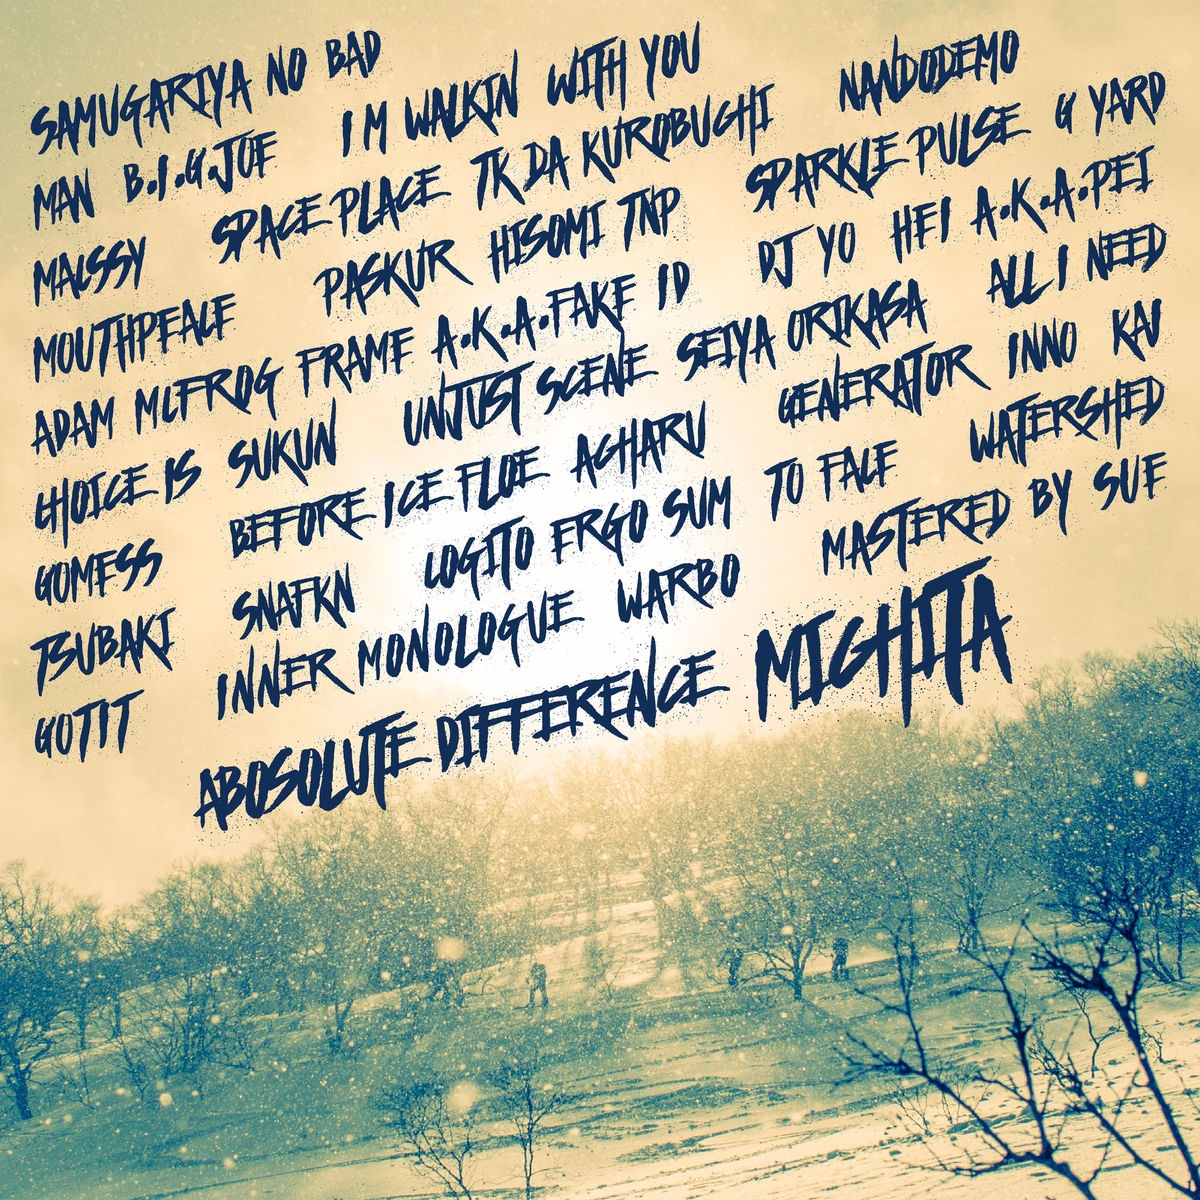 SAMUGARIYA NO BAD
MAN B.I.G.JOE I M WALKIN WITH YOU
MACSSY SPACE PLACE TK DA KUROBUCHI NANDODEMO
MOUTHPEACE PASKUR HISOMI TNP SPARKLE PULSE G YARD
ADAM MCFROG FRAME A.K.A.FAKE ID DJ YO HEI A.K.A.PEI
CHOICE IS SUKUN UNJUST SCENE SEIYA ORIKASA ALL I NEED
GOMESS BEFORE ICE FLOE ACHARU GENERATOR INNO KAI
TSUBAKI SNAFKN COGITO ERGO SUM TO FACE WATERSHED
GOTIT INNER MONOLOGUE WARBO MASTERED BY SUE
ABOSOLUTE DIFFERENCE MICHITA